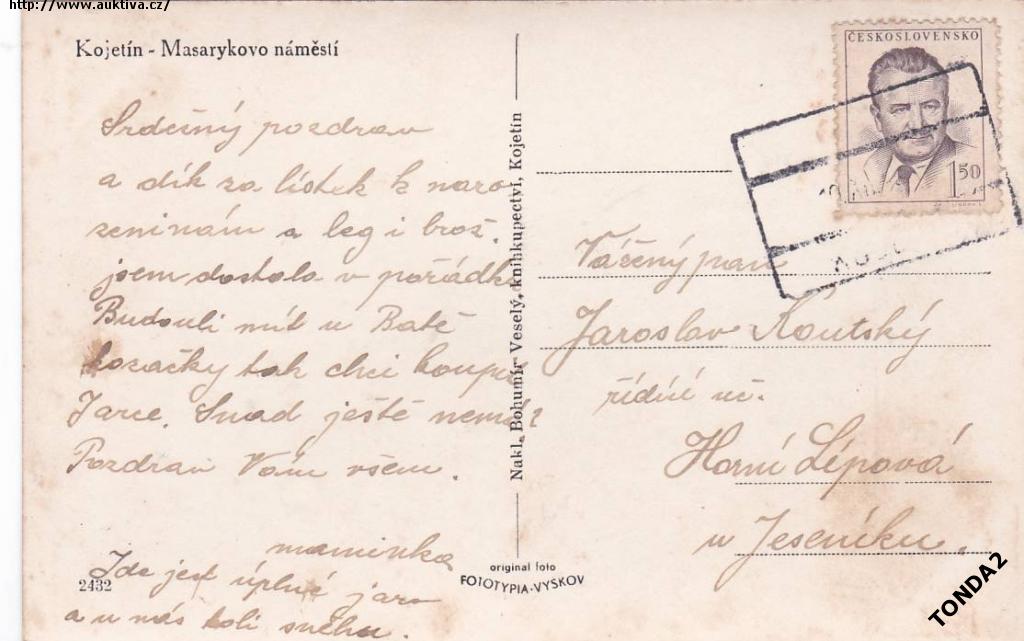 http://www.auktiva.cz/
Kojetín - Masarykovo náměstí
Srdečný pozdrav
a dík za lístek k naro-
zeninám a leg i brož.
jsem dostala v pořádku
Budouli mít u Batě
kozačky tak chci koupit
Jarce. Snad ještě nemá?
Pozdrav Vám všem.
maminka
Zde jest úplné jaro
a u nás kolik sněhu.
2432
Nakl. Bohumír Veselý, knihkupectví, Kojetín
original foto
FOTOTYPIA-VYŠKOV
ČESKOSLOVENSKO
1 50
Vážený pan
Jaroslav Koutský
řídící uč.
Horní Lípová
u Jeseníku.
TONDA2